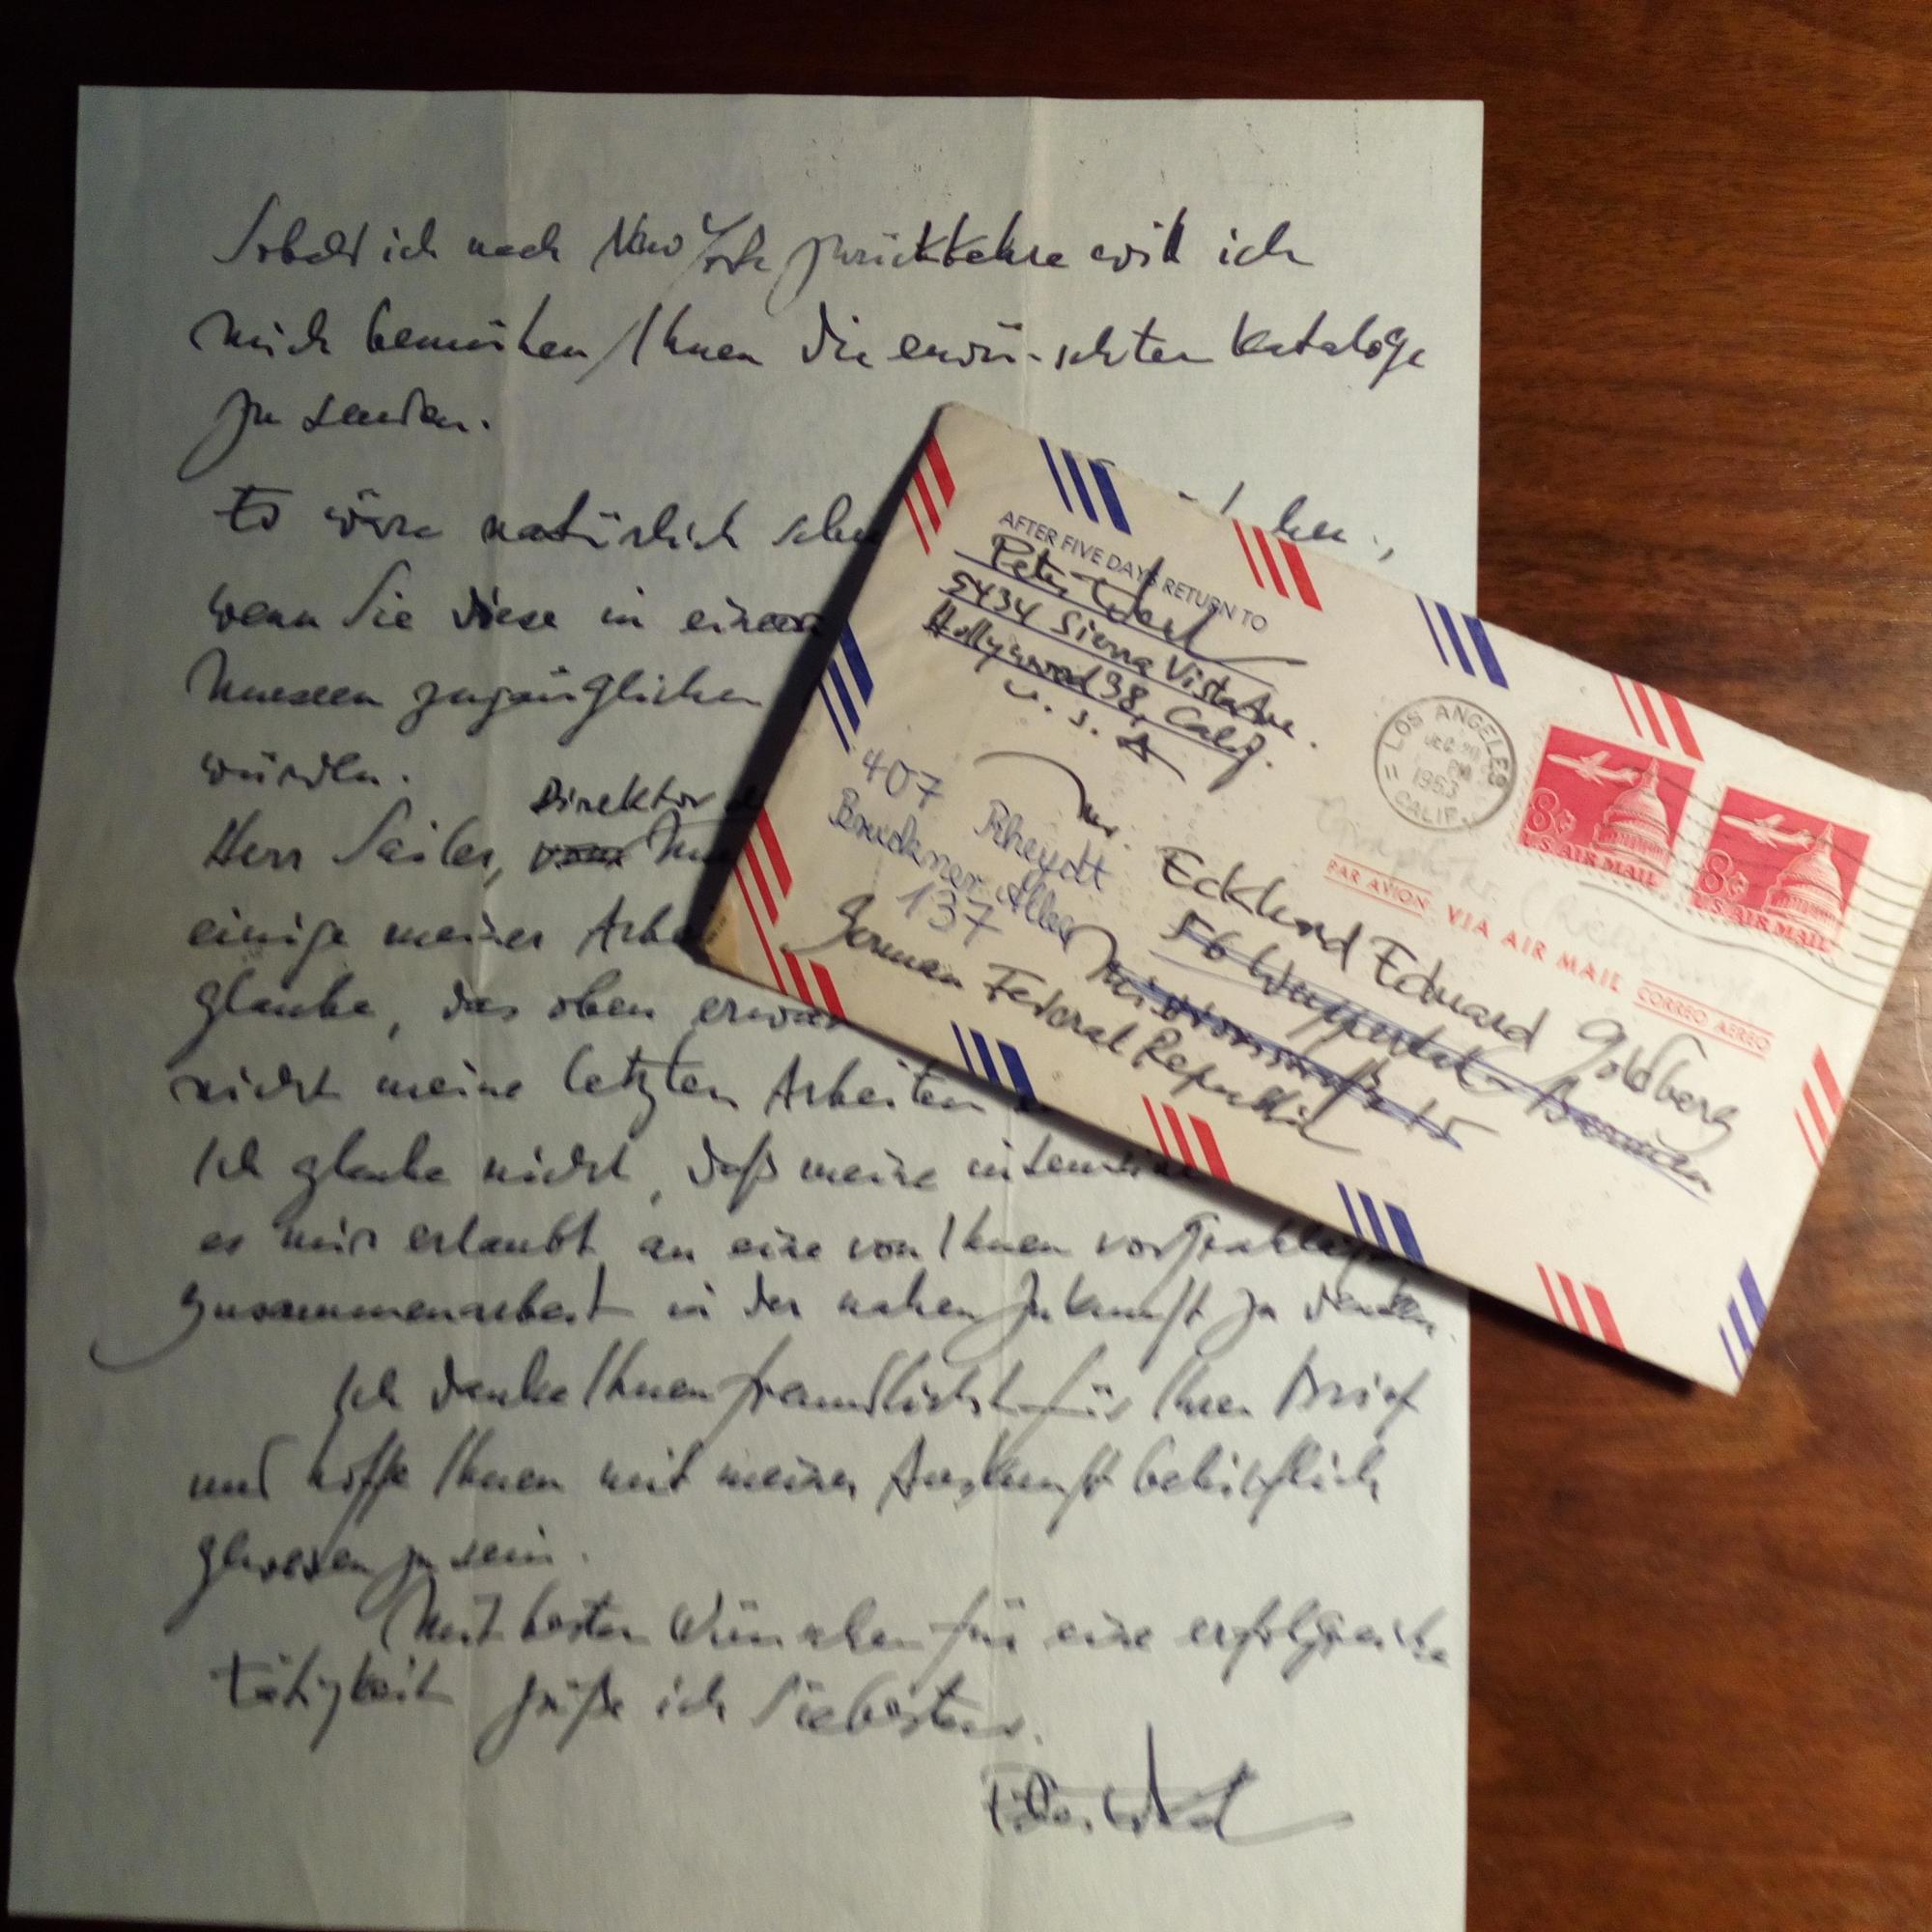 Sobald ich nach New York zurückkehre will ich
mich bemühen, Ihnen die erwünschten Kataloge
zu senden.
Es wäre natürlich
wenn Sie diese in einem
Museen zugänglichen
würden.
Direktor
Herr Seiler,
einige meiner
glaube, das oben
nicht meine letzten Arbeiten
Ich glaube nicht, daß meine
es mir erlaubt, an eine von Ihnen
Zusammenarbeit in der nahen Zukunft zu denken.
Ich danke Ihnen freundlichst für Ihren Brief
und hoffe Ihnen mit meiner Auskunft behilflich
gewesen zu sein.
Mit besten Wünschen für eine erfolgreiche
Tätigkeit grüße ich Sie bestens.
AFTER FIVE DAYS RETURN TO
Peter
5434 Sierra Vista Ave.
Hollywood 38, Calif.
U.S.A
LOS ANGELES
PM
1963
CALIF.
8¢
U.S. AIR MAIL
8¢
U.S. AIR MAIL
PAR AVION VIA AIR MAIL CORREO AEREO
Eckhard Eduard Goldberg
56 Wuppertal-Barmen
407 Rheydt
Bruckner-Allee
137
German Federal Republic